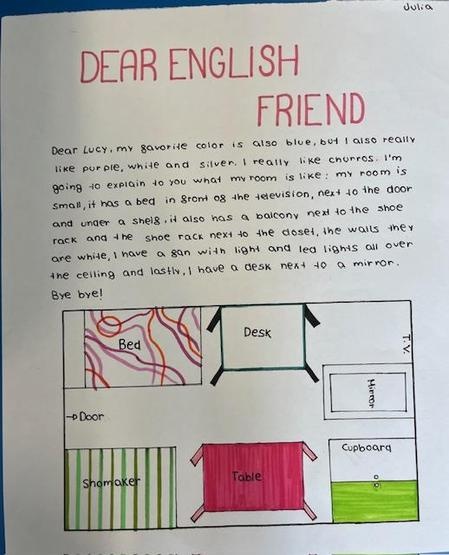 Julia
DEAR ENGLISH
FRIEND
Dear Lucy, my gavorite color is also blue, but I also really
like purple, white and silver. I really like churros. I'm
going to explain to you what my room is like: my room is
small, it has a bed in gront og the television, next to the door
and under a shelg, it also has a balcony next to the shoe
rack and the shoe rack next to the closet, the walls they
are white, I have a gan with light and led lights all over
the ceiling and lastly, I have a desk next to a mirror.
Bye bye!
Bed
Desk
T.V.
Mirror
→Door
Shomaker
Table
Cupboard